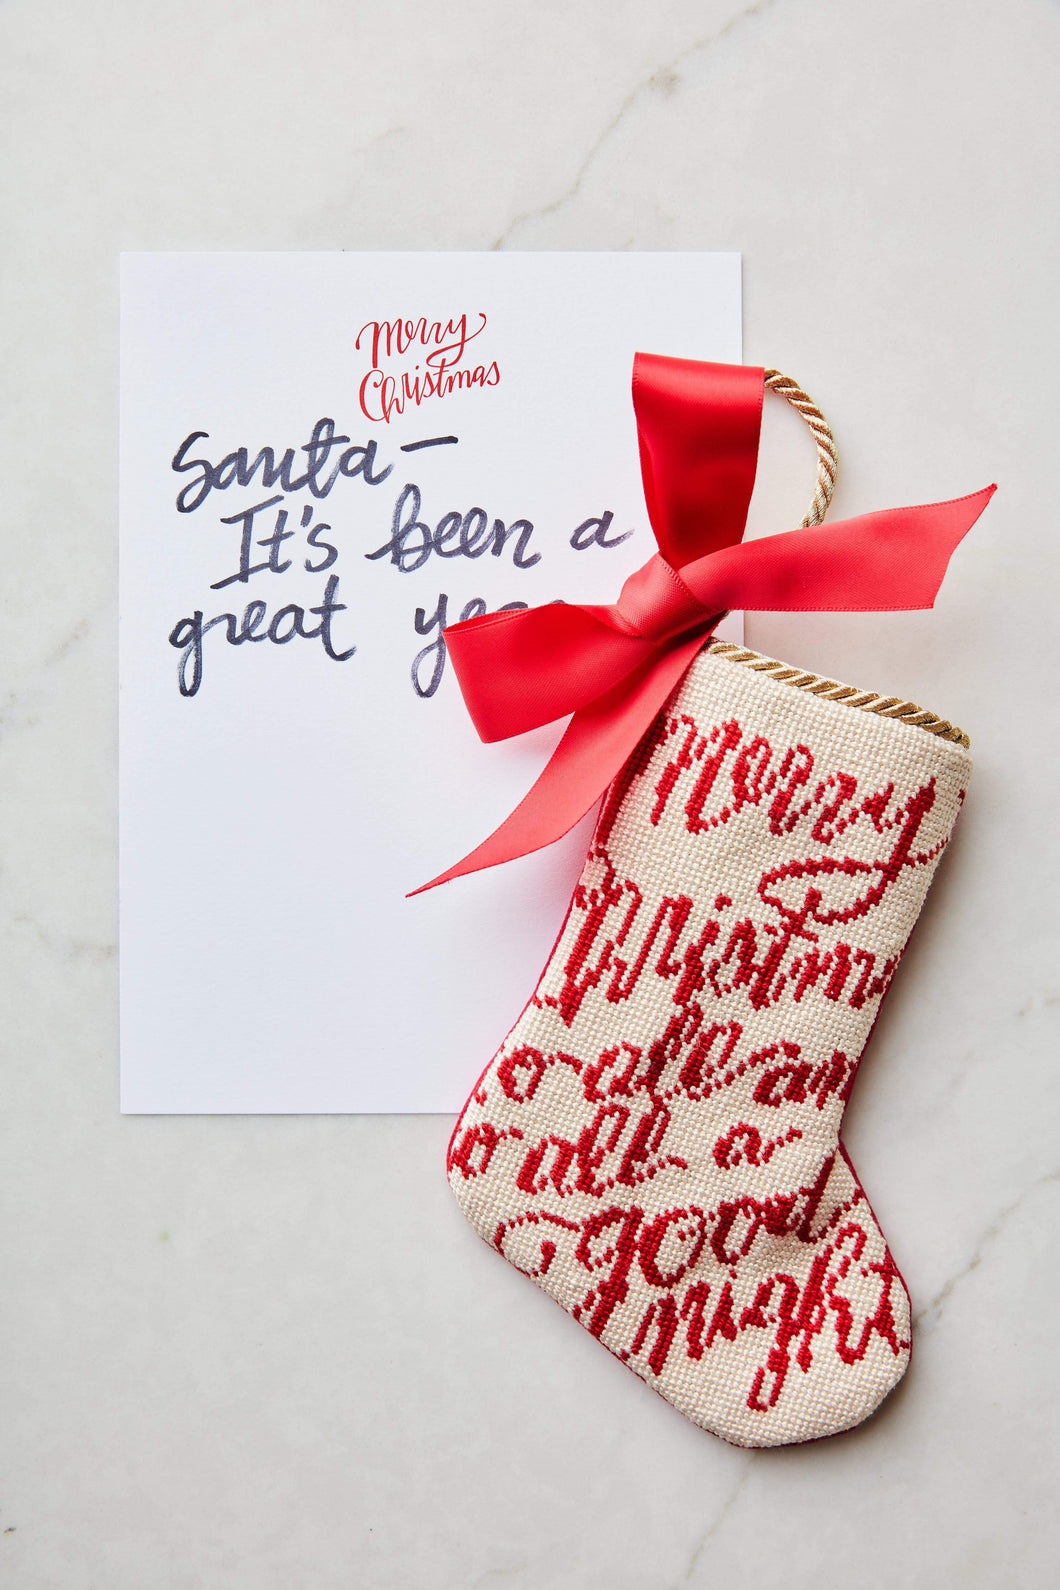 Merry
Christmas
Santa —
It's been a
great
Merry
Christm
o all an
o all a
good
night